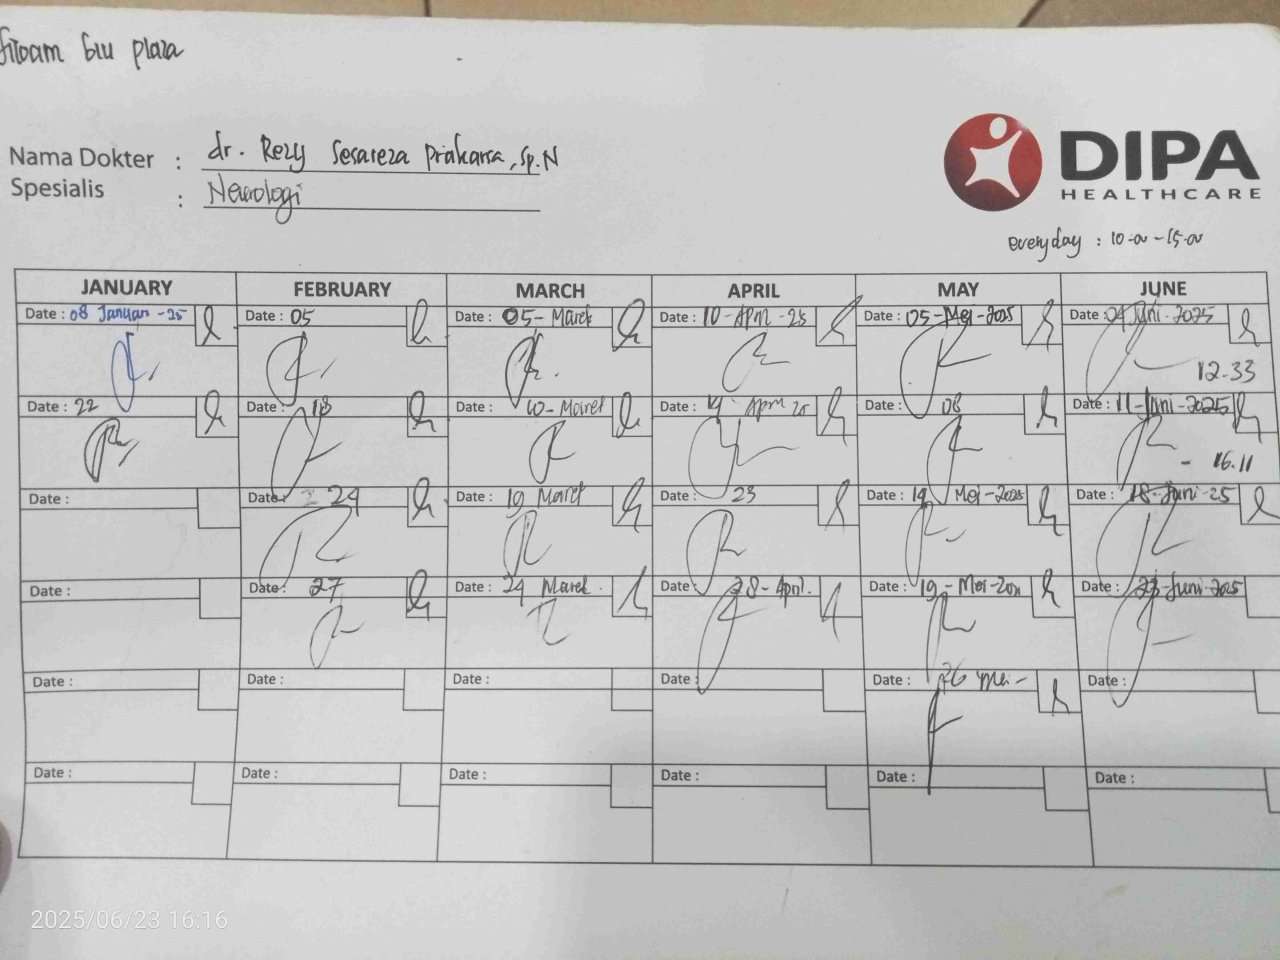 Siloam Blu plaza
Nama Dokter : dr. Rezy Sesareza Prakarsa, Sp.N
Spesialis : Neurologi
DIPA
HEALTHCARE
everyday : 10-00 - 15-00
JANUARY FEBRUARY MARCH APRIL MAY JUNE
Date : 08 Januari -25 Date : 05 Date : 05 - Maret Date : 10 - April - 25 Date : 05 - Mei - 2025 Date : 04 Juni - 2025
12.33
Date : 22 Date : 18 Date : 10 - Maret Date : April Date : 08 Date : 11 - Juni - 2025
- 16.11
Date : Date : 24 Date : 19 Maret Date : 23 Date : 14 Mei - 2025 Date : 18 - Juni - 25
Date : Date : 27 Date : 24 Maret Date : 28 - April Date : 19 - Mei - Date : 23 - Juni - 2025
Date : Date : Date : Date : Date : 26 Mei - Date :
Date : Date : Date : Date : Date : Date :
2025/06/23 16:16